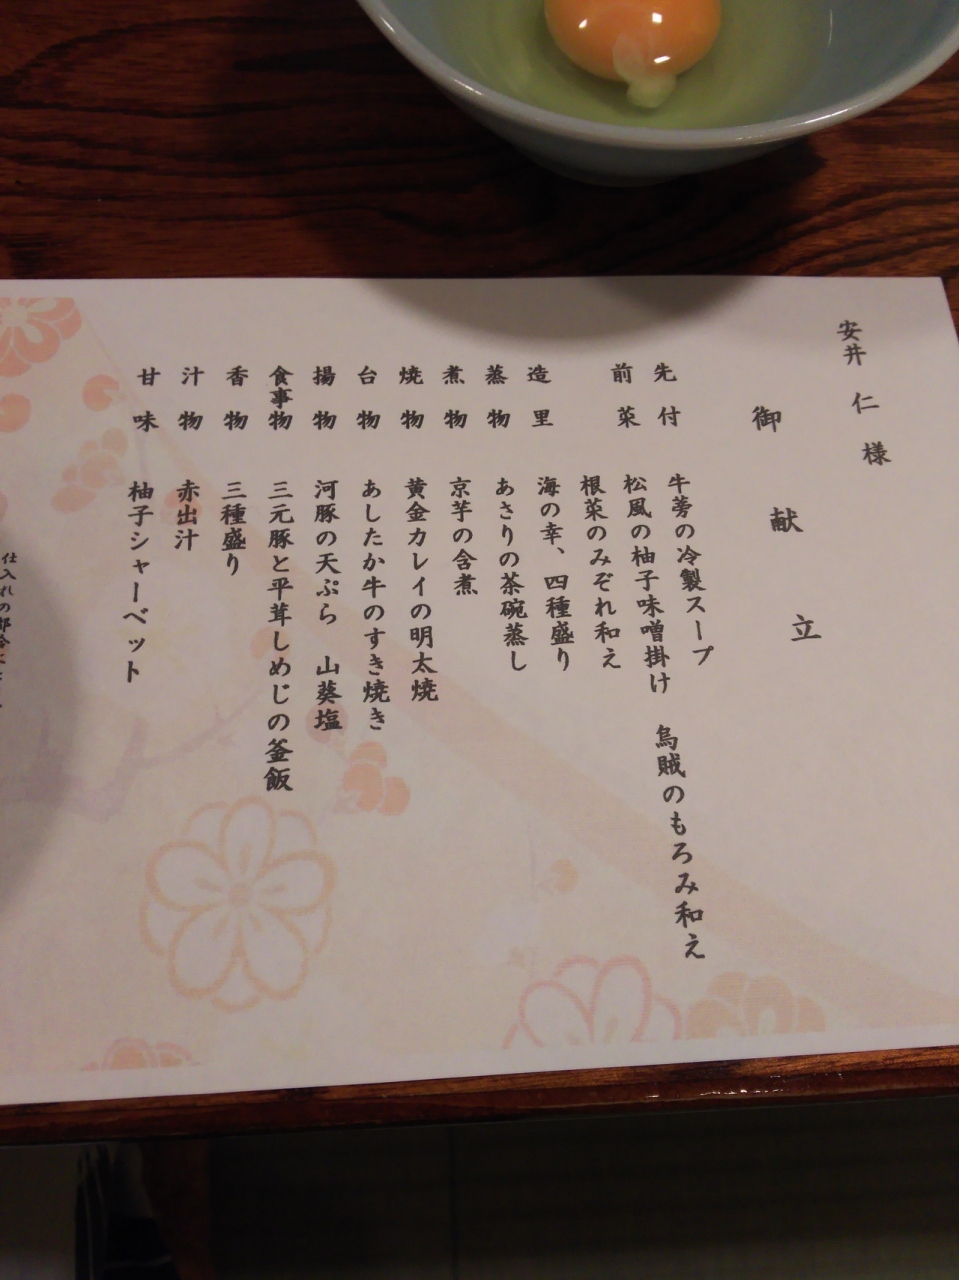 安井 仁 様
御献立
先付 牛蒡の冷製スープ
前菜 松風の柚子味噌掛け 烏賊のもろみ和え
根菜のみぞれ和え
造里 海の幸、四種盛り
蒸物 あさりの茶碗蒸し
煮物 京芋の含煮
焼物 黄金カレイの明太焼
台物 あしたか牛のすき焼き
揚物 河豚の天ぷら 山葵塩
食事物 三元豚と平茸しめじの釜飯
香物 三種盛り
汁物 赤出汁
甘味 柚子シャーベット
仕入れの都合に